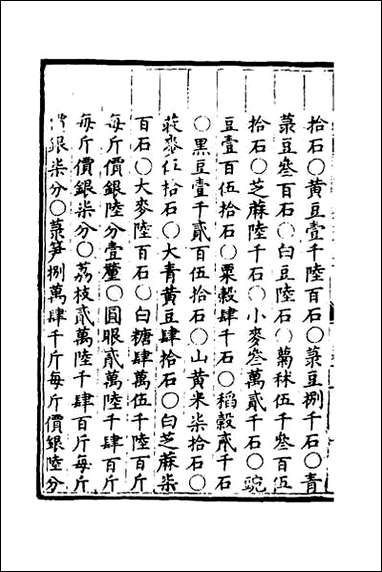 拾石〇黃豆壹千陸百石〇菉豆捌千石〇青
菉豆叄百石〇白豆陸石〇薥秫伍千叄百伍
拾石〇芝蔴陸千石〇小麥叄萬貳千石〇豌
豆壹百伍拾石〇粟穀肆千石〇稻穀貳千石
〇黑豆壹千貳百伍拾石〇山黃米柒拾石〇
莜麥伍拾石〇大青黃豆肆拾石〇白芝蔴柒
百石〇大麥陸百石〇白糖肆萬伍千陸百斤
每斤價銀陸分壹釐〇圓眼貳萬陸千肆百斤
每斤價銀柒分〇荔枝貳萬陸千肆百斤每斤
價銀柒分〇菉筍捌萬肆千斤每斤價銀陸分